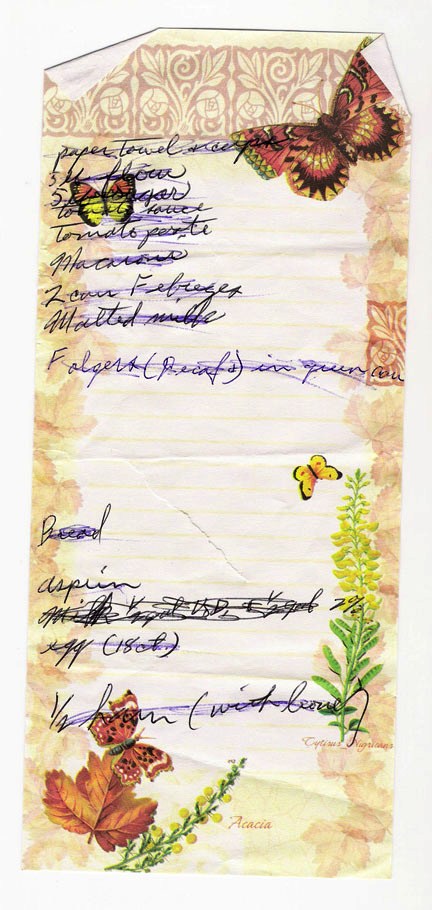 paper towel
5# flour
5# sugar
Tomato sauce
Tomato paste
Macaroni
2 can Febreze
Malted milk
Folgers (Decafs) in green can
Bread
aspirin
Milk 2%
egg (18 ct.)
1/2 ham (with bone)
Cytisus Nigricans
Acacia